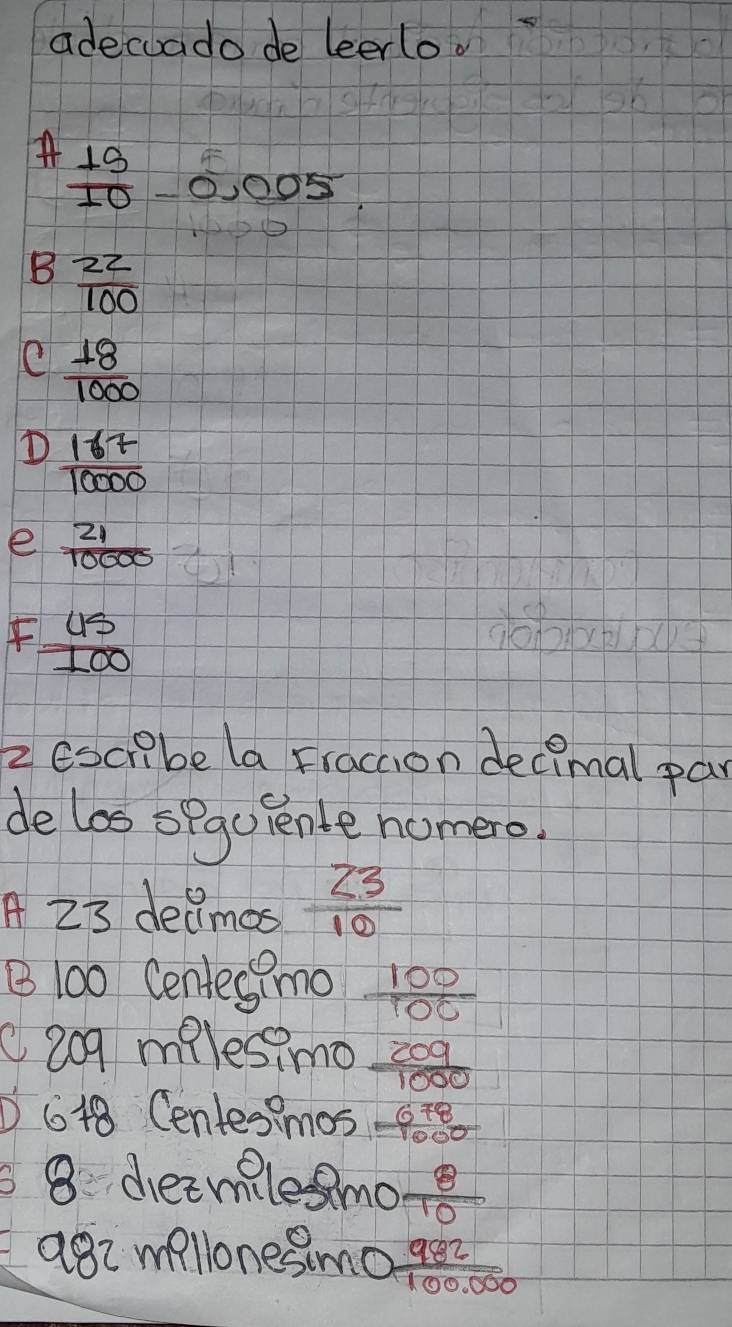 adecuado de leerlo.
A 15/10 - 0,005
B 22/100
C 18/1000
D 167/10000
e 21/10000
F 45/100
2 Escribe la Fraccion decimal par
de los siguiente numero.
A 23 decimos 23/10
B 100 Centecimo 100/100
C 209 milesimo 209/1000
D 678 Centesimos 678/1000
8 diezmilesimo 8/10
F 982 millonesimo 982/100.000